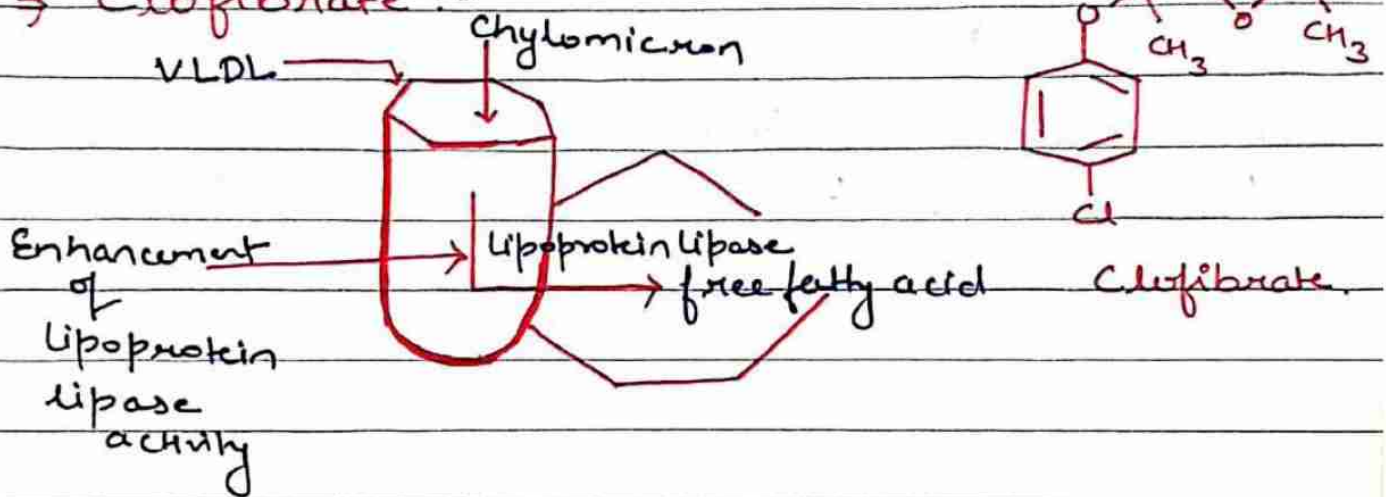 → Clofibrate.
Chylomicron
VLDL
O
CH3
O
CH3
Cl
Enhancement
of
lipoprotein
lipase
activity
lipoprotein lipase
free fatty acid
Clofibrate.